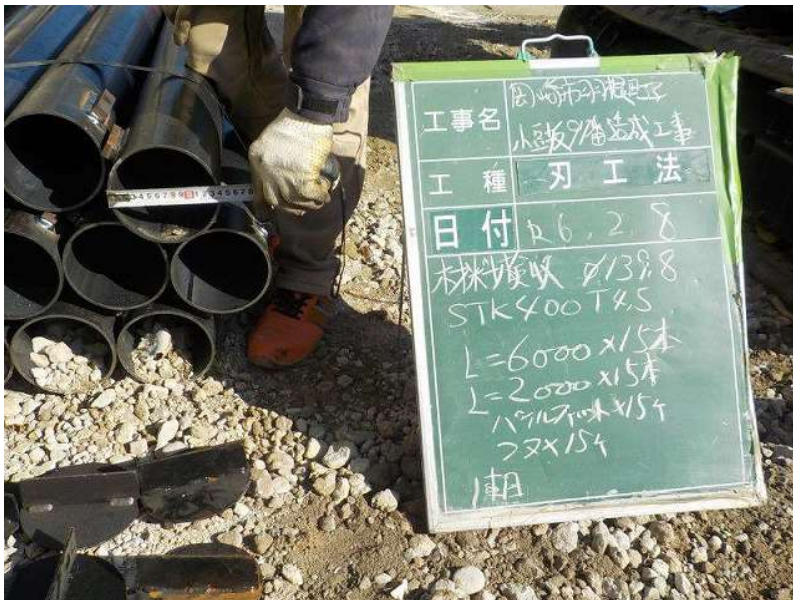 工事名
岡崎市
小豆坂9番造成工事
工種 刃工法
日付 R6.2.8
材料検収 φ139.8
STK400 T4.5
L=6000×15本
L=2000×15本
パイルフィット×15ケ
フタ×15ケ